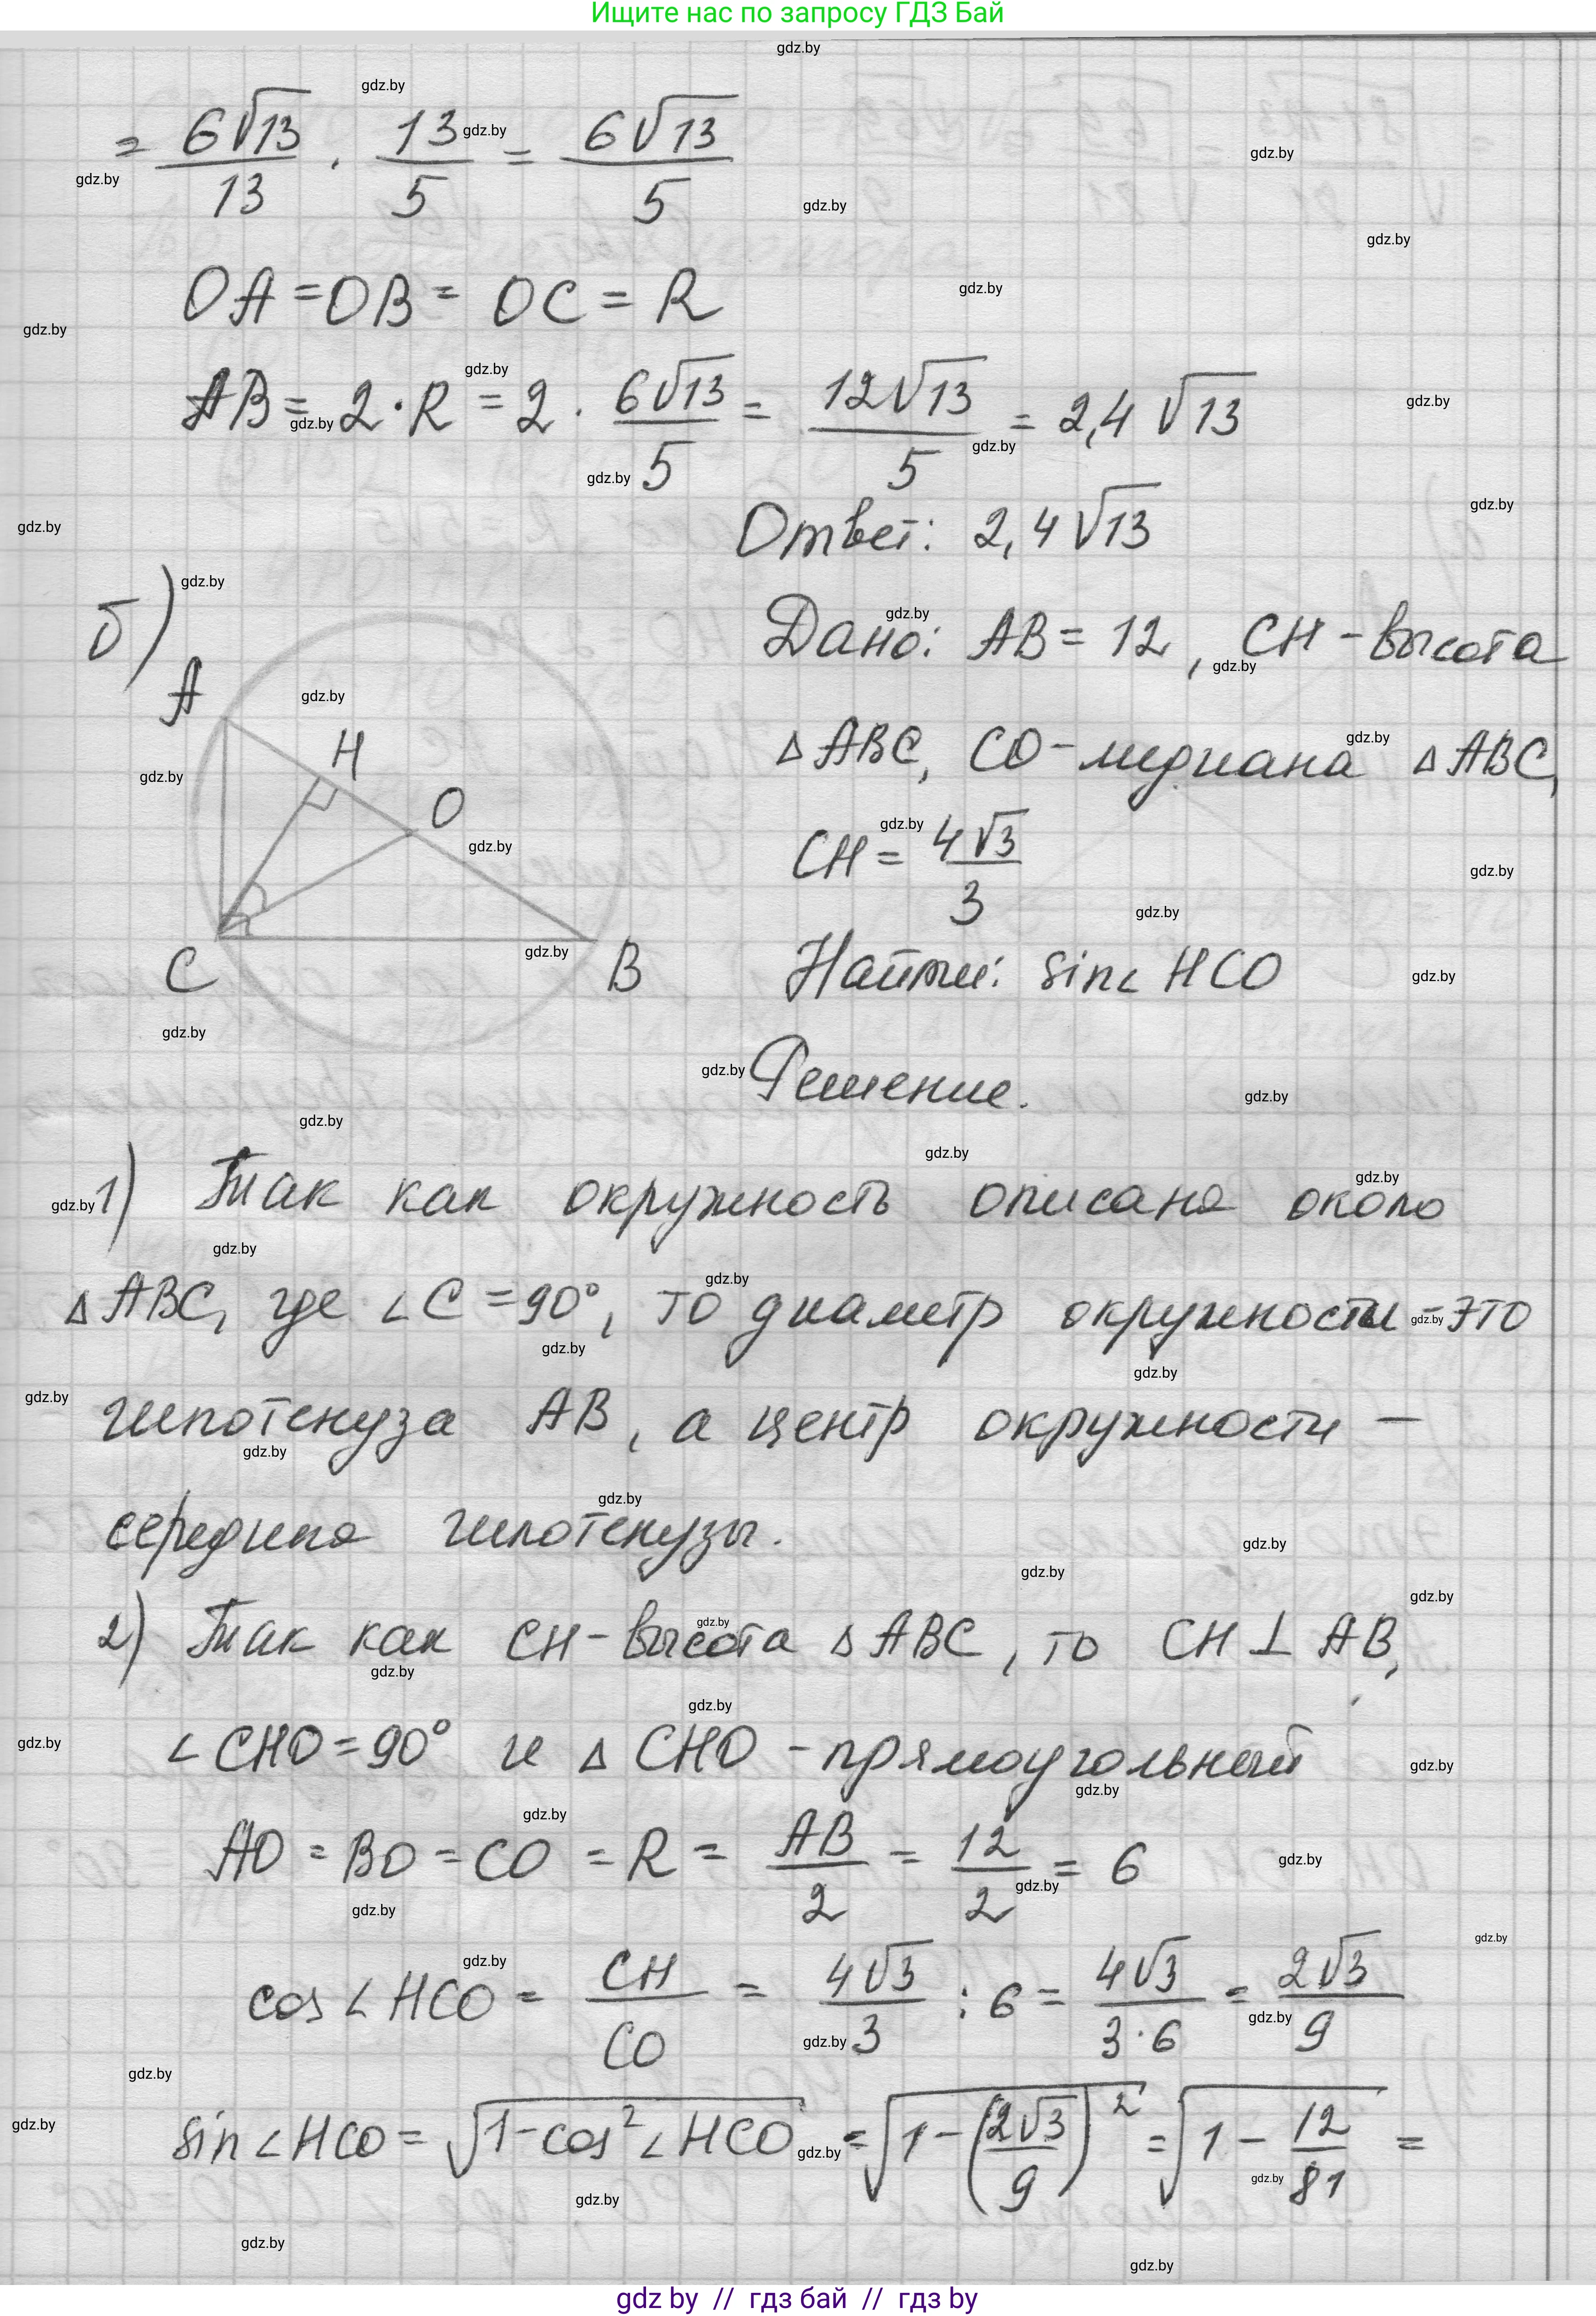 Ищите нас по запросу ГДЗ Бай
= 6√13/13 · 13/5 = 6√13/5
OA = OB = OC = R
AB = 2 · R = 2 · 6√13/5 = 12√13/5 = 2,4 √13
Ответ: 2,4 √13
б)
Дано: AB = 12, CH – высота
△ABC, CO – медиана △ABC,
CH = 4√3/3
Найти: sin∠HCO
A
H
O
C
B
Решение.
1) Так как окружность описана около
△ABC, где ∠C = 90°, то диаметр окружности – это
гипотенуза AB, а центр окружности –
середина гипотенузы.
2) Так как CH – высота △ABC, то CH ⊥ AB,
∠CHO = 90° и △CHO – прямоугольный
AO = BO = CO = R = AB/2 = 12/2 = 6
cos∠HCO = CH/CO = 4√3/3 : 6 = 4√3/3·6 = 2√3/9
sin∠HCO = √(1 – cos²∠HCO) = √(1 – (2√3/9)²) = √(1 – 12/81) =
gdz.by
gdz by // гдз бай // гдз by